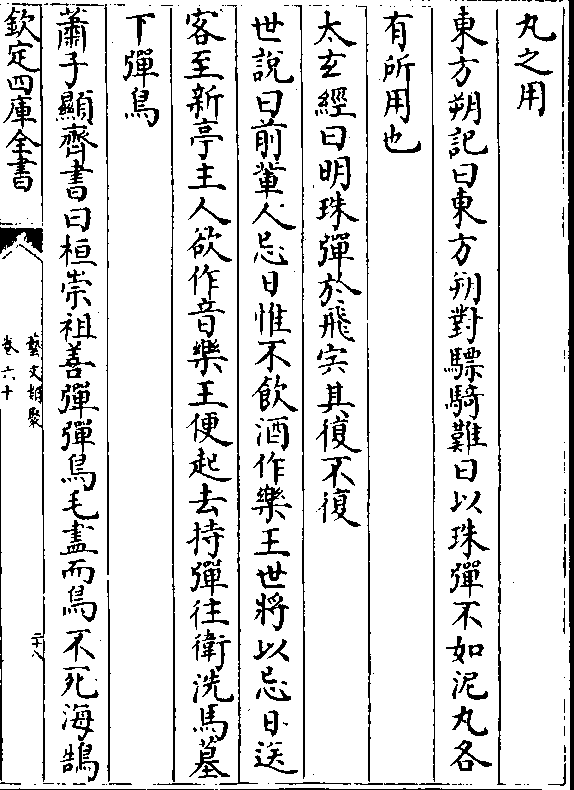 丸之用
東方朔記曰東方朔對驃騎難曰以珠彈不如泥丸各
有所用也
太玄經曰明珠彈於飛宍其復不復
世說曰前輩人忌日惟不飲酒作樂王世將以忌日送
客至新亭主人欲作音樂王便起去持彈往衛洗馬墓
下彈鳥
蕭子顯齊書曰桓崇祖善彈彈鳥毛盡而鳥不死海鵠
欽定四庫全書
藝文類聚
卷六十
二十八